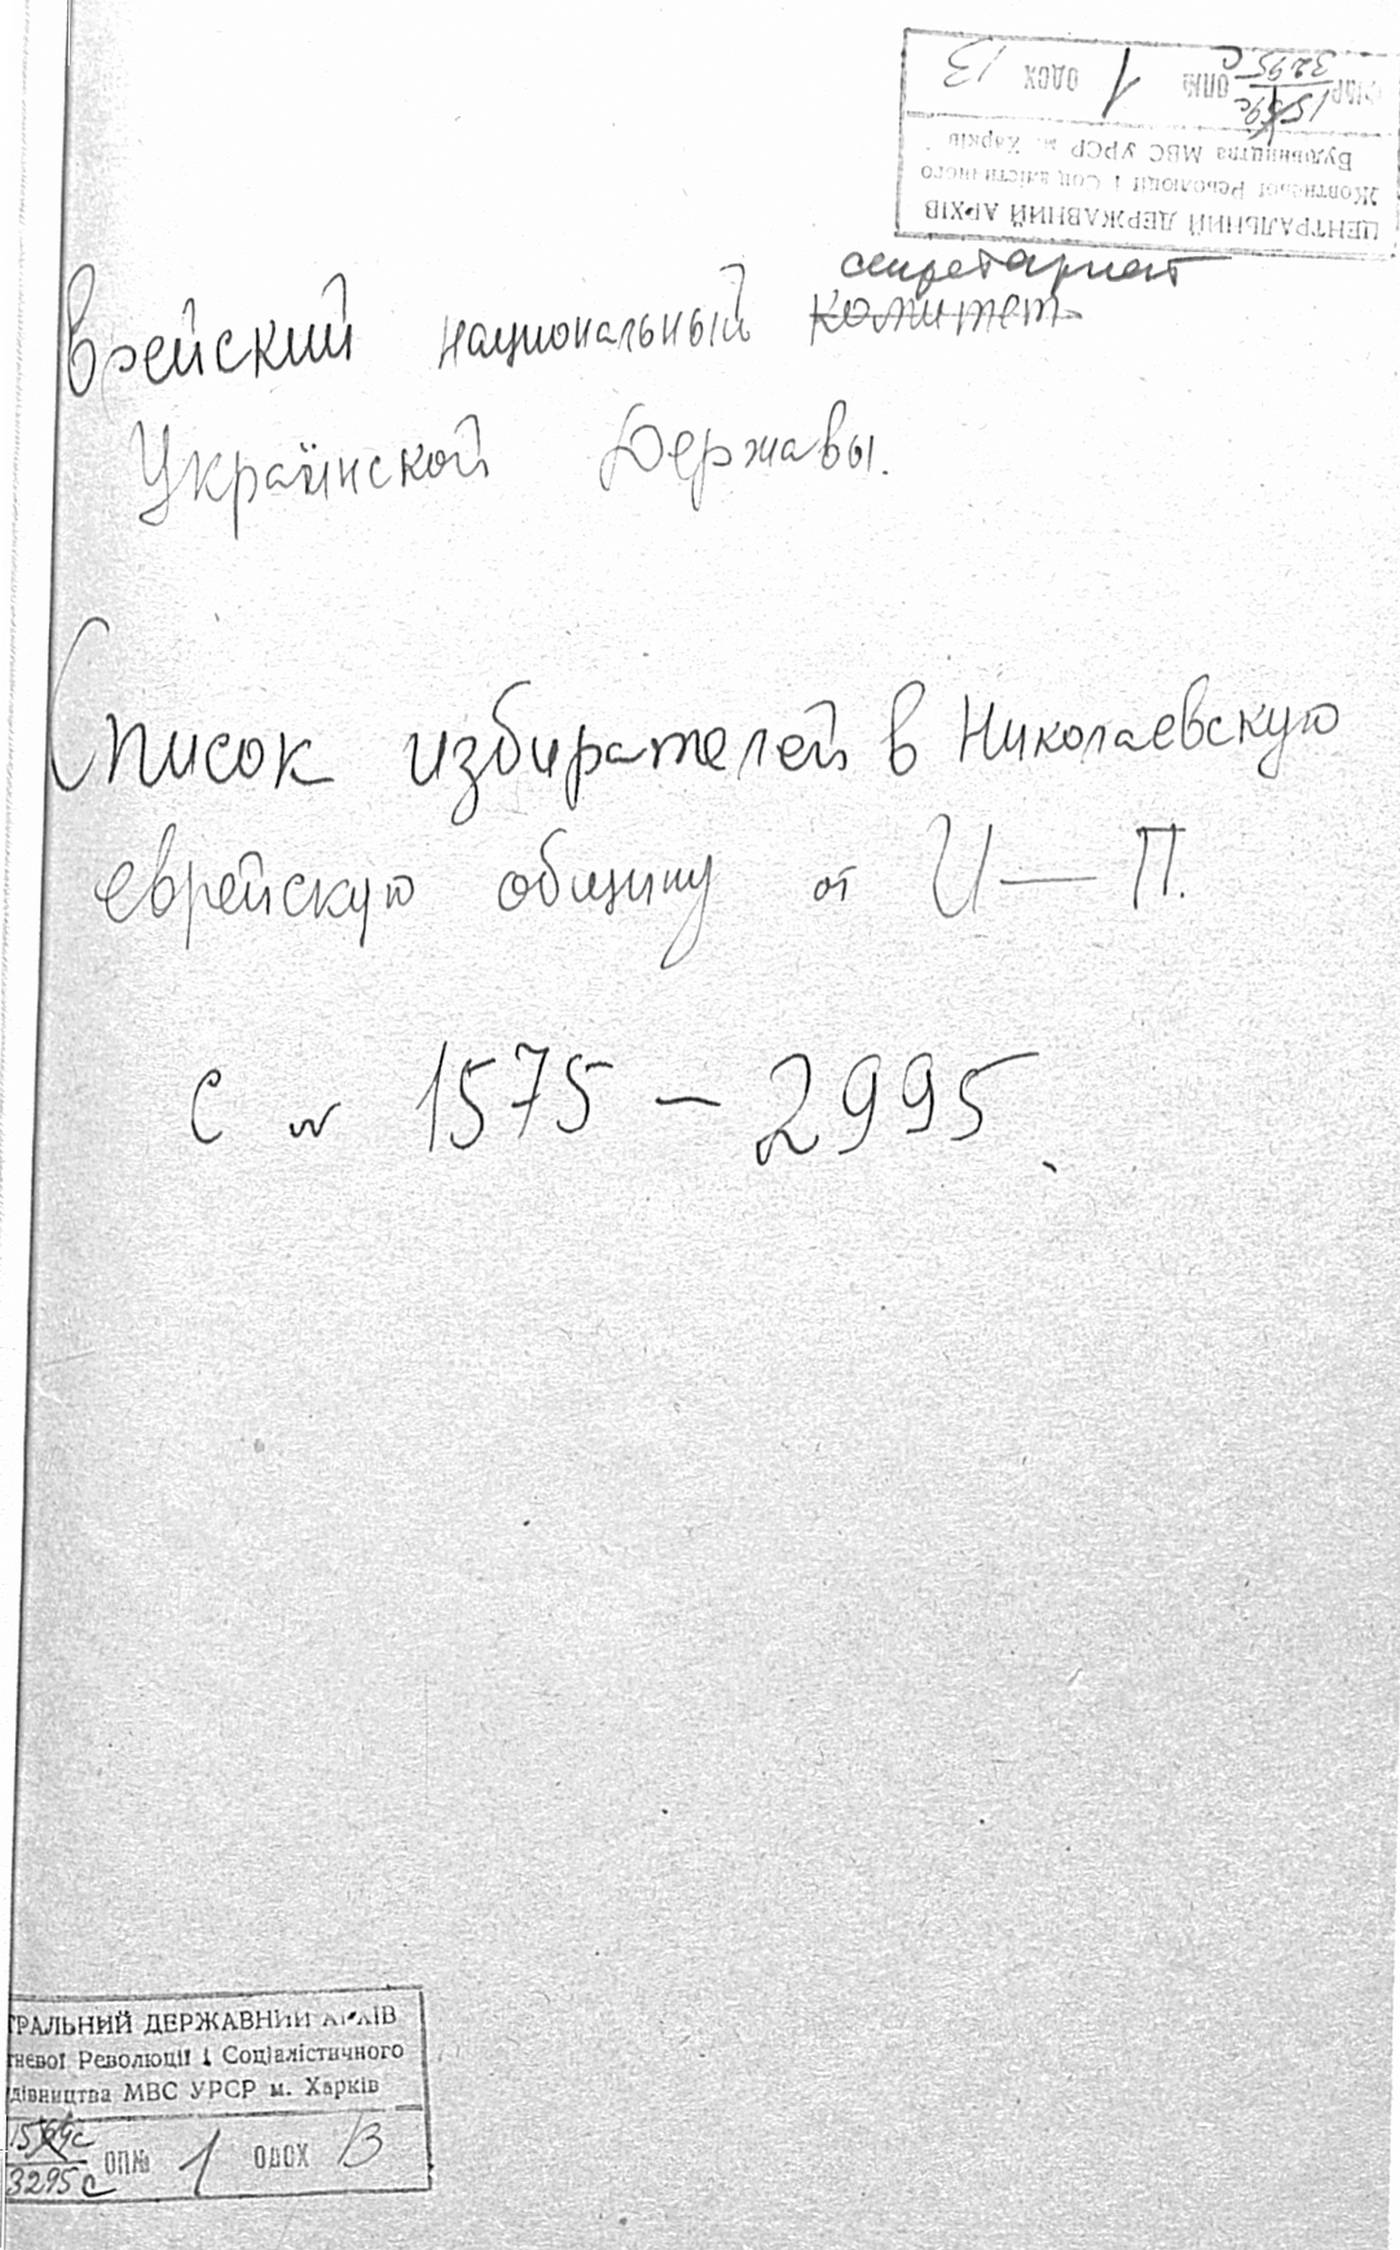 ЦЕНТРАЛЬНИЙ ДЕРЖАВНИЙ АРХІВ
Жовтневої Революції і Соціалістичного
Будівництва МВС УРСР м. Харків
3295 с ОПИС 1 ОДСХ 13
секретариат
врейский национальный комитет
Украинской Державы.
Список избирателей в Николаевскую
еврейскую общину от И — П.
с № 1575 — 2995.
ТРАЛЬНИЙ ДЕРЖАВНИЙ АРХІВ
тневої Революції і Соціалістичного
дівництва МВС УРСР м. Харків
3295 с ОП№ 1 ОДСХ 13